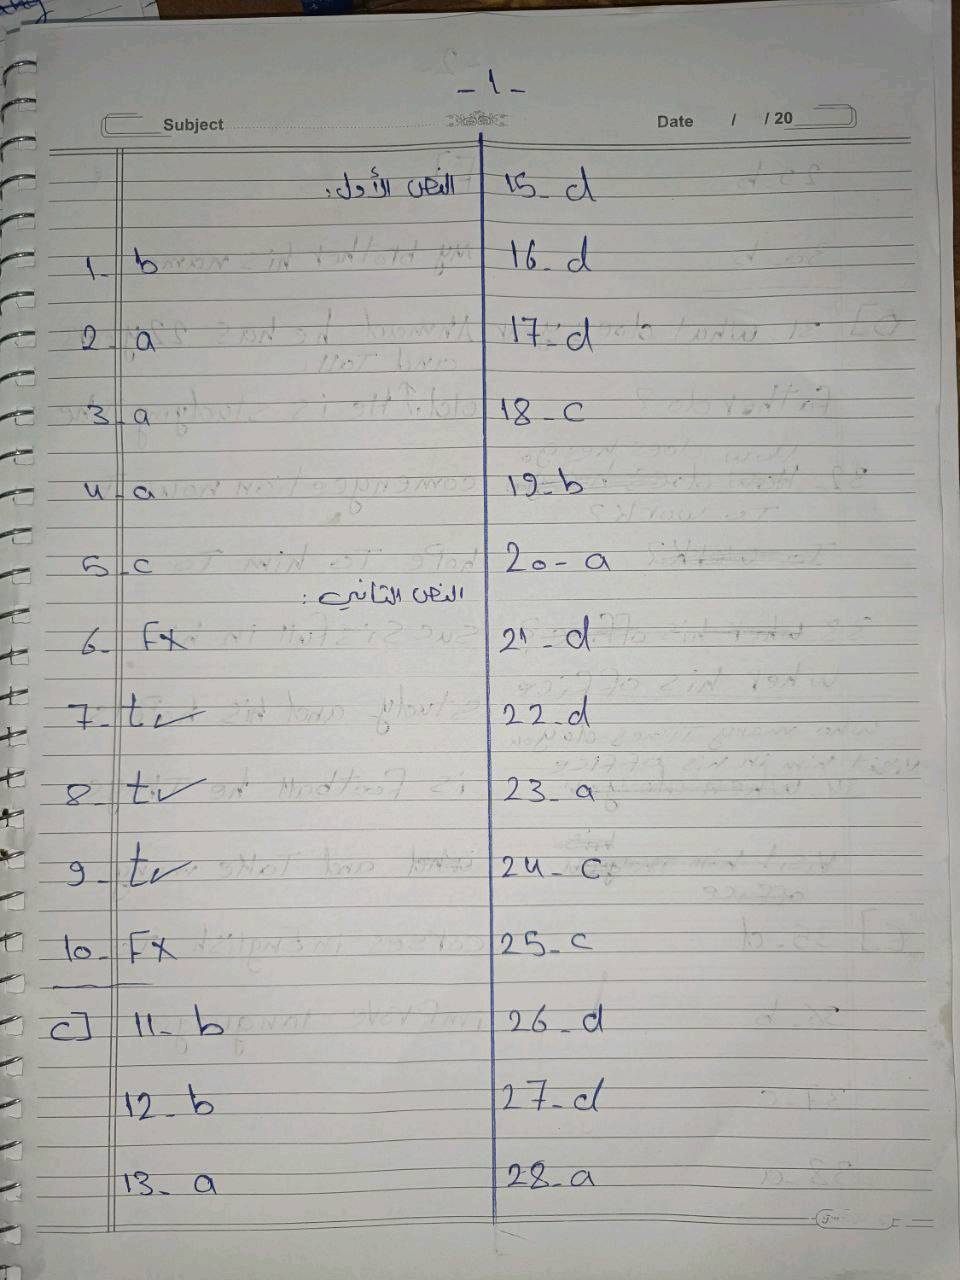 - ١ -
Subject
Date / / 20
النص الأول:
1- b
2- a
3- a
4- a
5- c
النص الثاني:
6- F x
7- t ✓
8- t ✓
9- t ✓
10- F x
c] 11- b
12- b
13- a
15- d
16- d
17- d
18- c
19- b
20- a
21- d
22- d
23- a
24- c
25- c
26- d
27- d
28- a